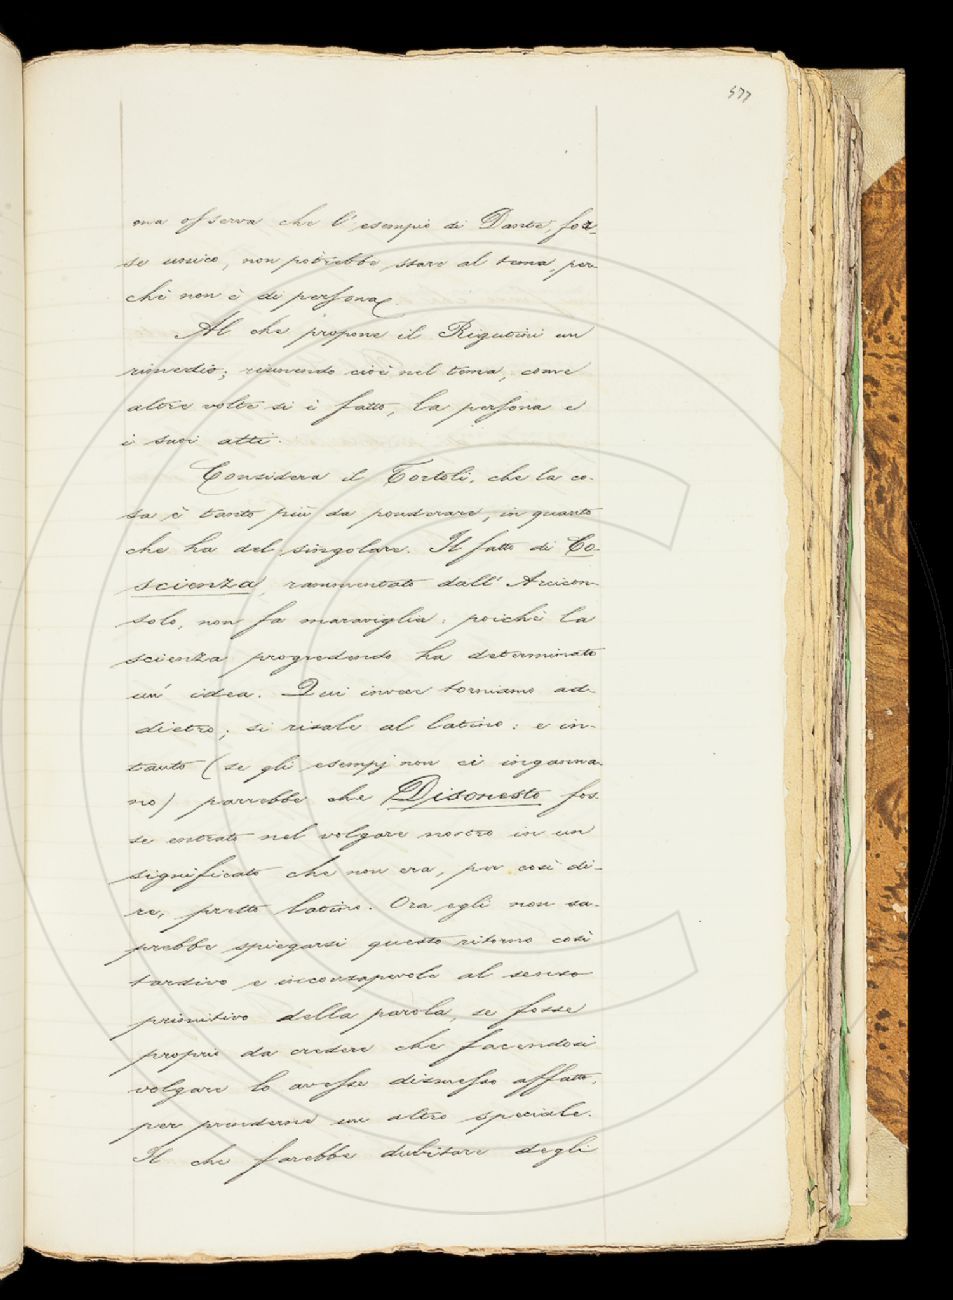 577
ma osserva che l'esempio di Dante, fos-
se unico, non potrebbe stare al tema, per-
chè non è di persona.
Al che propone il Rigutini un
rimedio; riunendo cioè nel tema, come
altre volte si è fatto, la persona e
i suoi atti.
Considera il Tortoli, che la co-
sa è tanto più da ponderare, in quanto
che ha del singolare. Il fatto di Co-
scienza, rammentato dall'Arcicon-
solo, non fa maraviglia: poichè la
scienza progredendo ha determinato
un'idea. Qui invece torniamo ad-
dietro; si risale al latino: e in-
tanto (se gli esempj non ci inganna-
no) parrebbe che Disonesto fos-
se entrato nel volgare nostro in un
significato che non era, per così di-
re, pretto latino. Ora egli non sa-
prebbe spiegarsi questo ritorno così
tardivo e inconsapevole al senso
primitivo della parola, se fosse
proprio da credere che facendosi
volgare lo avesse dismesso affatto,
per prenderne un altro speciale.
Il che farebbe dubitare degli